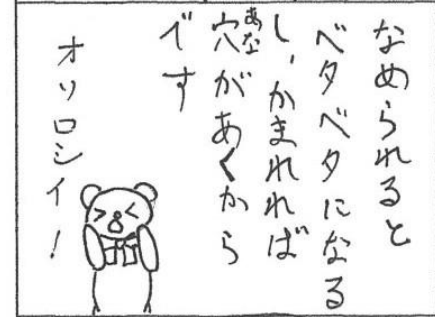 なめられると
ベタベタになる
し、かまれれば
穴があくから
あな
です
オソロシイ！